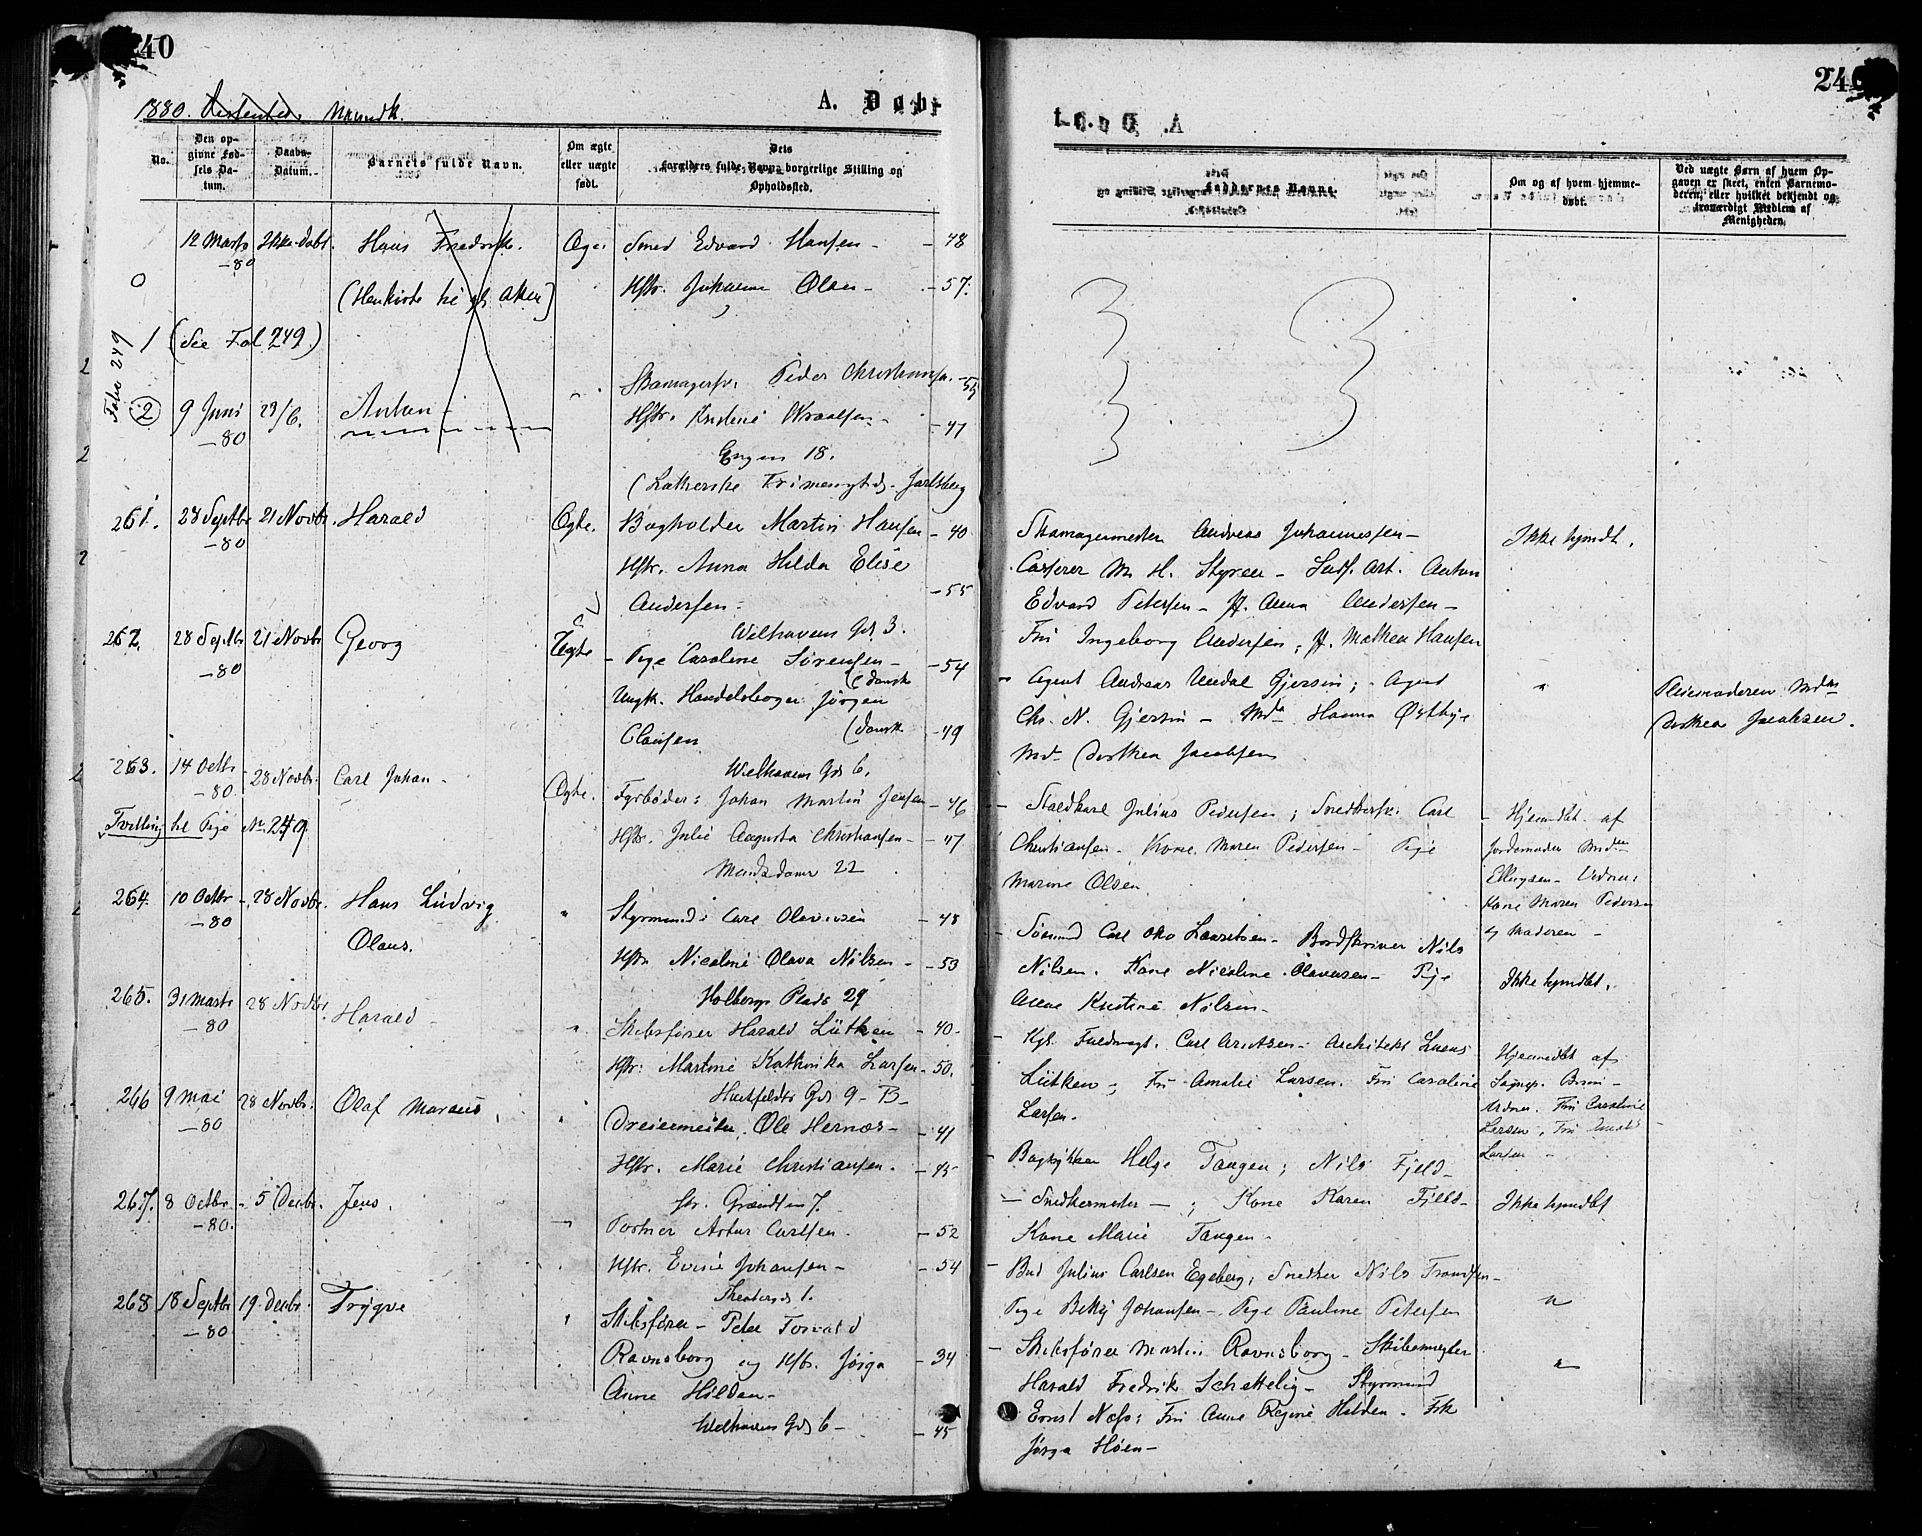 40
1880. Mandk.
A. Døbt
No.
Den opgivne Fødsels Datum.
Daabs-Datum.
Barnets fulde Navn.
Om ægte eller uægte født.
Dets Forældres fulde Navn, borgerlige Stilling og Opholdssted.
12 Marts Ikke døbt. Hans Fredrik. Smed Edvard Hansen - 48
- 80
Hstr. Olsen - 57.
1 (See Fol 249)
Folio 249
Peder Christiansen - 54
2 9 Juni 29/6. Anton Hstr. - 47
- 80
Engen 18.
(Lutherske Frimenighed - Jarlsberg
261. 28 Septbr 21 Novbr. Harald Ægte. Bogholder Martin Hansen - 40
- 80
Hstr. Anna Hilda Elise
Andersen - - 55
Welhavens Gd 3.
262. 28 Septbr 21 Novbr Georg Uegte - Pige Caroline Sørensen - - 54
- 80 (dansk
Ungk. Handelsborger Jørgen
Clausen (dansk - 49
Welhavens Gd 6.
263. 14 Octbr - 28 Novbr. Carl Johan - Ægte. Fyrbøder: Johan Martin Jensen - 46
- 80
Tvilling til Pige No. 249. Hstr. Julie Augusta Christiansen - - 47
Munkedamv 22
264. 10 Octbr - 28 Novbr. Hans Ludvig " Styrmand: Carl Olavesen - 48
- 80
Olaus. Hstr. Nicoline Olava Nilsen - - 53
Holbergs Plads 29
265. 31 Marts 28 Novbr. Harald - " Skibsfører Harald Lütken - 40.
- 80
Hstr: Martine Kathinka Larsen - 50.
Huitfeldts Gd 9 - B -
266 9 Mai 28 Novbr. Olaf Marius " Dreiermester. Ole Hernæs - - 41
- 80
Hstr. Marie Christiansen. - 45
267. 8 Octbr - 5 Decbr. Jens. " Portner Artur Carlsen. - 52
- 80.
Hstr. Johansen - - 54
Theatergd 1.
268 18 Septbr 19 Decbr. Trygve " Skibsfører - Peter Torvald
- 80
Ravnsborg og Hstr. Jørga - 34
Anne Hilden -
Welhavens Gd 6 - - 45
24
Faddernes Navne.
Om og af hvem hjemmedøbt.
Ved uægte Børn af hvem Opgaven er skeet, enten Barnemoderen, eller hvilket bekjendt og troværdigt Medlem af Menigheden.
Skomagermester Andreas Johannessen - Ikke hjmdt.
Casserer M. H. Styren - Anton
Edvard Petersen - Jf. Anna Andersen -
Fru Ingeborg Andersen; Jf. Mathea Hansen
- Agent Andreas Undal Gjersin; - Agent " Pleiemoderen Mdm
Chr. N. Gjersin - Md Hanna Østbye Dorthea Jacobsen.
Md - Dorthea Jacobsen
- Staldkarl Julius Pedersen; Snedkersv. Carl - Hjemmdbt. af
Christiansen - Kone Maren Pedersen - Pige Jordemoder Mdm
Marine Olsen. Ellingsen - Vidner:
Kone Maren Pedersen
og Moderen -
- Sømand Carl Otto Lauritsen - Bordskriver Nils
Nilsen. Kone Nicoline Olavesen - Pige Ikke hjmdbt.
Anne Kristine Nilsen -
- Kgl. Fuldmægt. Carl Arntsen - Architekt Hjemmdbt af
Lütken -; Fru Amalie Larsen. Fru Caroline Sognep. Bruun -
Larsen. Vidner. Fru Caroline
Larsen, Fru Amalie
Larsen -
- Bogtrykker Helge Tangen; Nils Fjeld -
- Snedkermester -; Kone Karen Fjeld - Ikke hjmdbt
Kone Marie Tangen -
- Bud Julius Carlsen Egeberg; Snedker Nils Frandsen -
Pige Johansen - Pige Pauline Petersen "
- Skibsfører Martin Ravnsborg - Skibsmægler
Harald Fredrik Schettelig - Styrmand "
Ernst Næss; Fru Anne Regine Hilden - Frk
Jørga Høen -